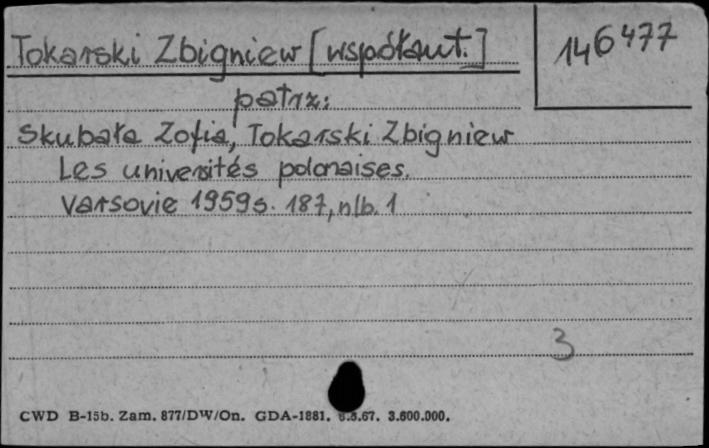 Tokarski Zbigniew [współaut.]
146477
patrz:
Skubała Zofia, Tokarski Zbigniew
Les universités polonaises.
Varsovie 1959 s. 187, nlb. 1
3
CWD B-15b. Zam. 877/DW/On. GDA-1881. 3.67. 3.600.000.